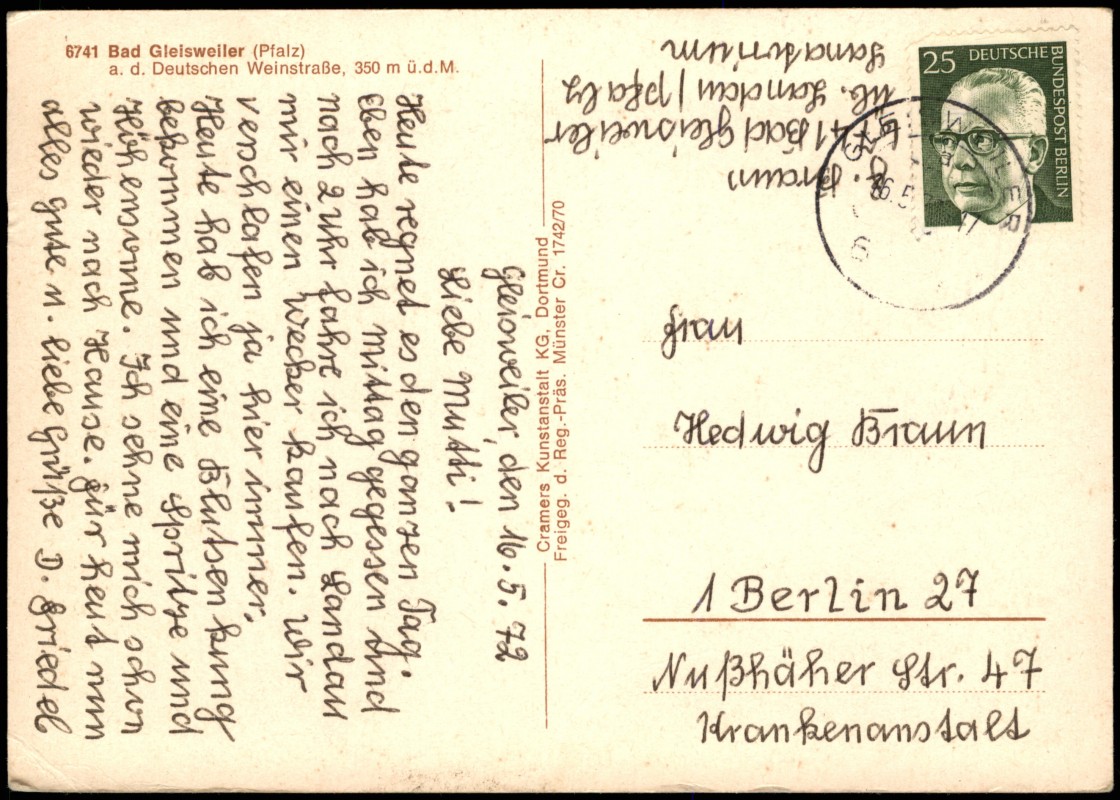 6741 Bad Gleisweiler (Pfalz)
a. d. Deutschen Weinstraße, 350 m ü.d.M.
Gleisweiler, den 16.5.72
Liebe Mutti!
Heute regnet es den ganzen Tag.
Eben hab ich mittag gegessen und
nach 2 Uhr fahre ich nach Landau
mir einen Wecker kaufen. Wir
verschlafen ja hier immer.
Heute hab ich eine Blutsenkung
bekommen und eine Spritze und
Höhensonne. Ich sehne mich schon
wieder nach Hause. Für heut nun
alles gute u. liebe Grüße D. Friedel
Cramers Kunstanstalt KG, Dortmund
Freigeg. d. Reg.-Präs. Münster Cr. 1742/70
Braun
41 Bad Gleisweiler
üb. Landau/Pfalz
Sanatorium
25 DEUTSCHE
BUNDESPOST BERLIN
Frau
Hedwig Braun
1 Berlin 27
Nußhäher Str. 47
Krankenanstalt